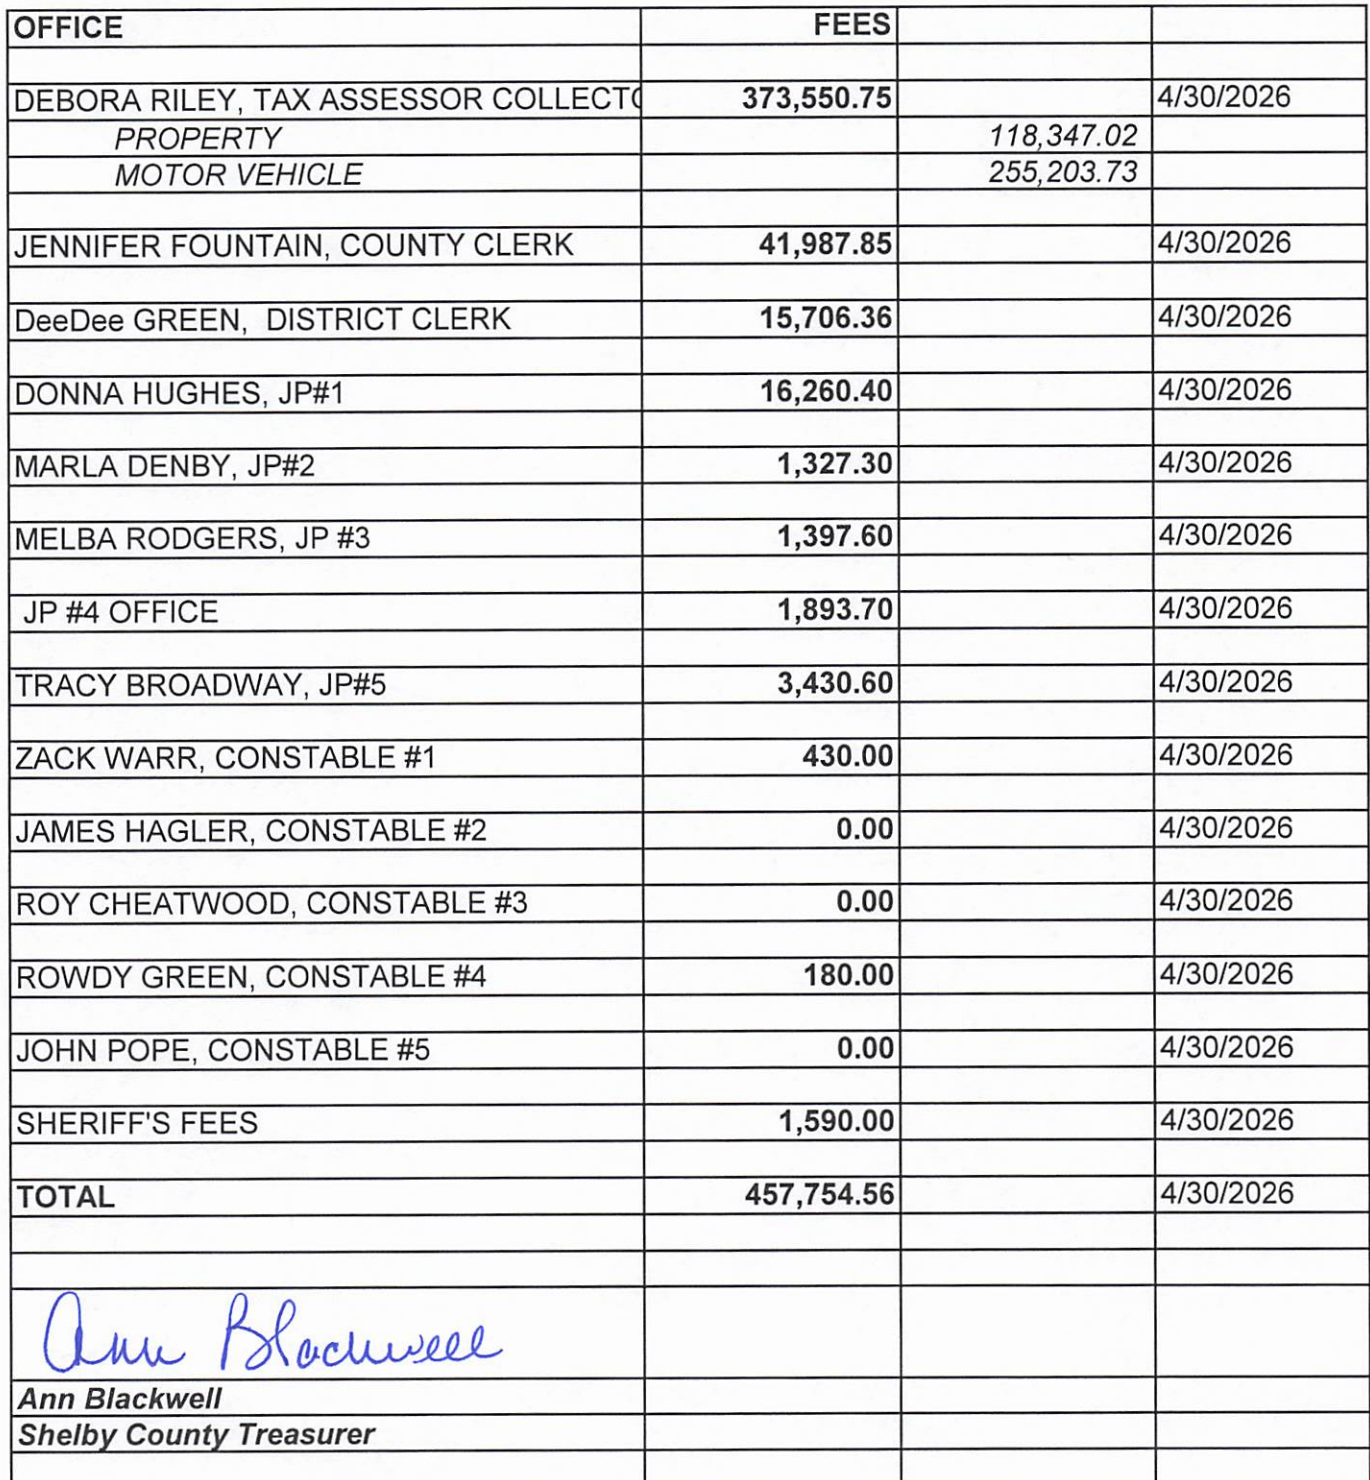 OFFICE FEES
DEBORA RILEY, TAX ASSESSOR COLLECTO 373,550.75 4/30/2026
PROPERTY 118,347.02
MOTOR VEHICLE 255,203.73
JENNIFER FOUNTAIN, COUNTY CLERK 41,987.85 4/30/2026
DeeDee GREEN, DISTRICT CLERK 15,706.36 4/30/2026
DONNA HUGHES, JP#1 16,260.40 4/30/2026
MARLA DENBY, JP#2 1,327.30 4/30/2026
MELBA RODGERS, JP #3 1,397.60 4/30/2026
JP #4 OFFICE 1,893.70 4/30/2026
TRACY BROADWAY, JP#5 3,430.60 4/30/2026
ZACK WARR, CONSTABLE #1 430.00 4/30/2026
JAMES HAGLER, CONSTABLE #2 0.00 4/30/2026
ROY CHEATWOOD, CONSTABLE #3 0.00 4/30/2026
ROWDY GREEN, CONSTABLE #4 180.00 4/30/2026
JOHN POPE, CONSTABLE #5 0.00 4/30/2026
SHERIFF'S FEES 1,590.00 4/30/2026
TOTAL 457,754.56 4/30/2026
Ann Blackwell
Ann Blackwell
Shelby County Treasurer